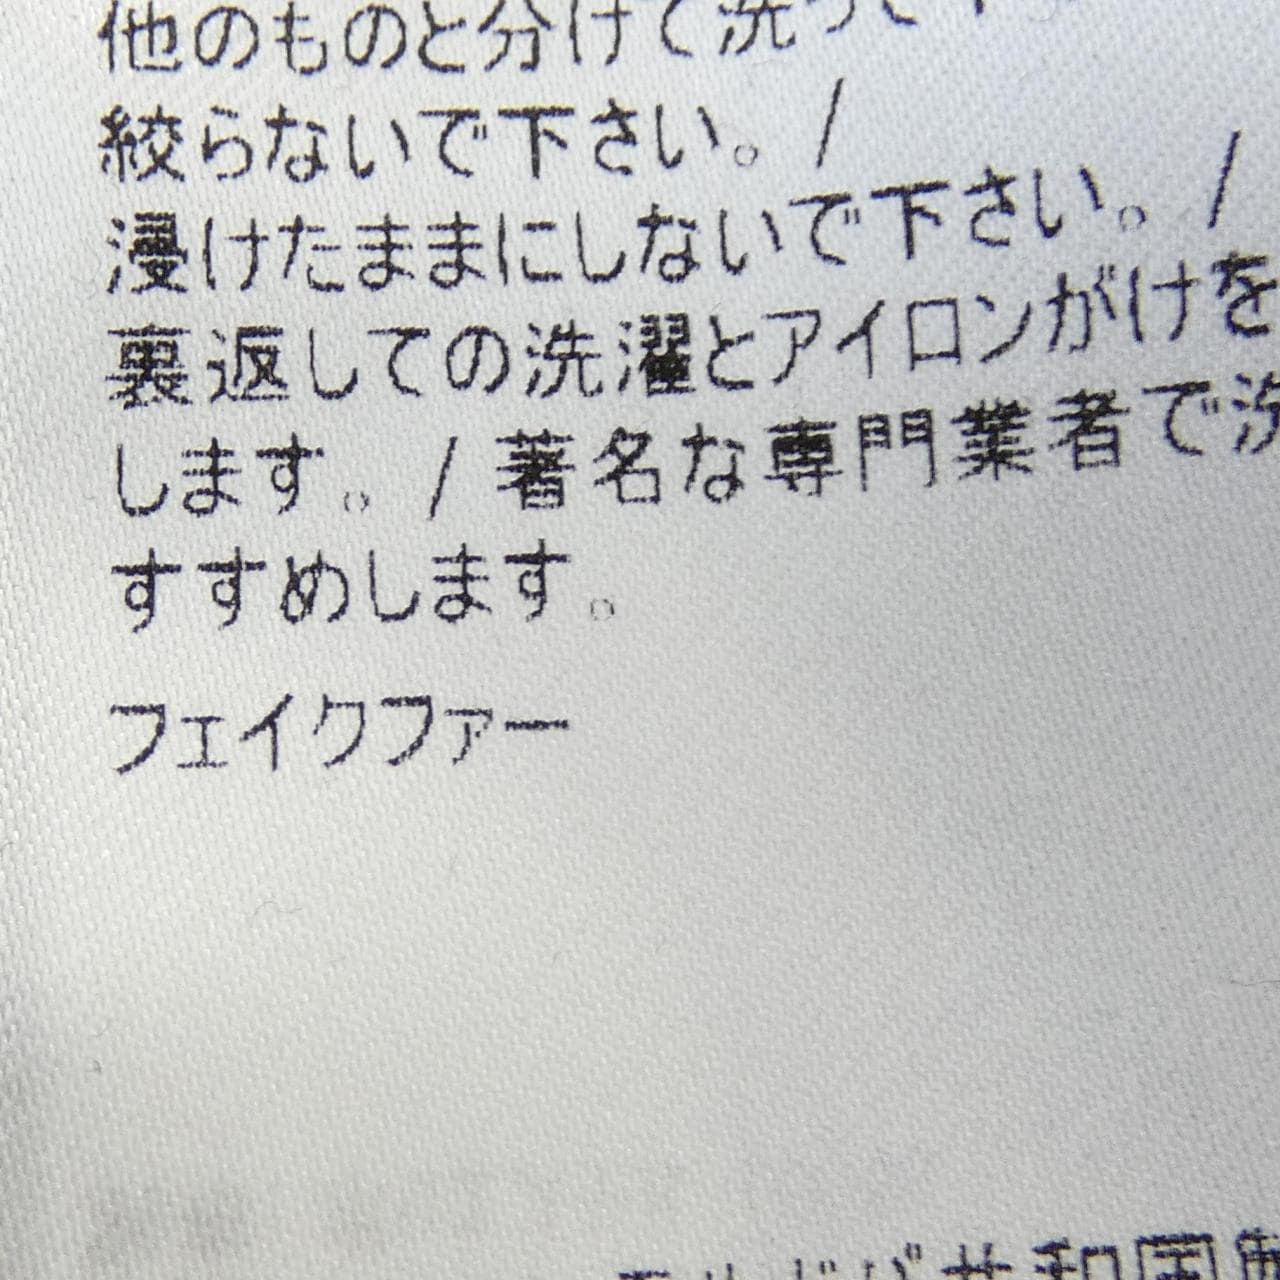 他のものと分けて洗って
絞らないで下さい。/
浸けたままにしないで下さい。/
裏返しての洗濯とアイロンがけを
します。/ 著名な専門業者で洗
すすめします。
フェイクファー
共和国製